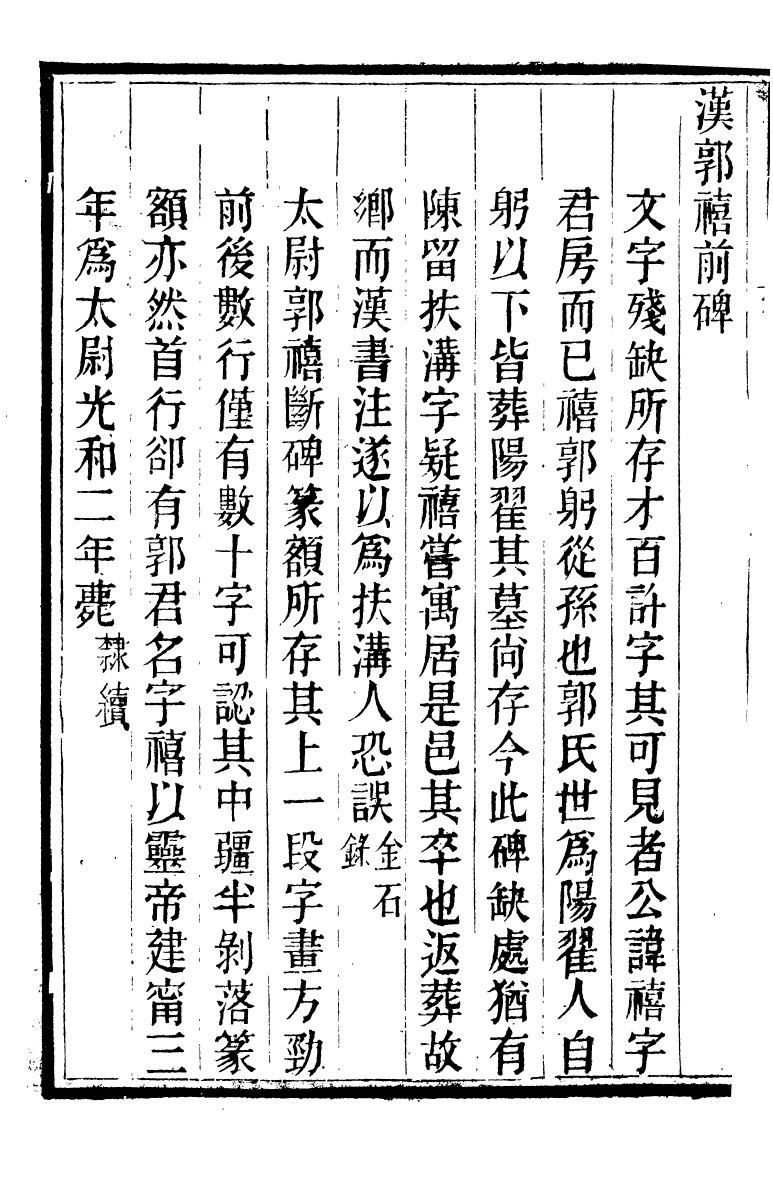 漢郭禧前碑
文字殘缺所存才百許字其可見者公諱禧字
君房而已禧郭躬從孫也郭氏世爲陽翟人自
躬以下皆葬陽翟其墓尙存今此碑缺處猶有
陳留扶溝字疑禧嘗寓居是邑其卒也返葬故
鄉而漢書注遂以爲扶溝人恐誤金石錄
太尉郭禧斷碑篆額所存其上一段字畫方勁
前後數行僅有數十字可認其中疆半剝落篆
額亦然首行卻有郭君名字禧以靈帝建甯三
年爲太尉光和二年薨隸續